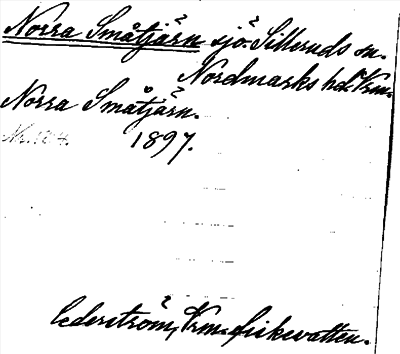 Norra Småtjärn sjö. Silleruds sn.
Nordmarks hd. Vrm.
Norra Småtjärn.
1897.
Cederström, Vrm. fiskevatten.